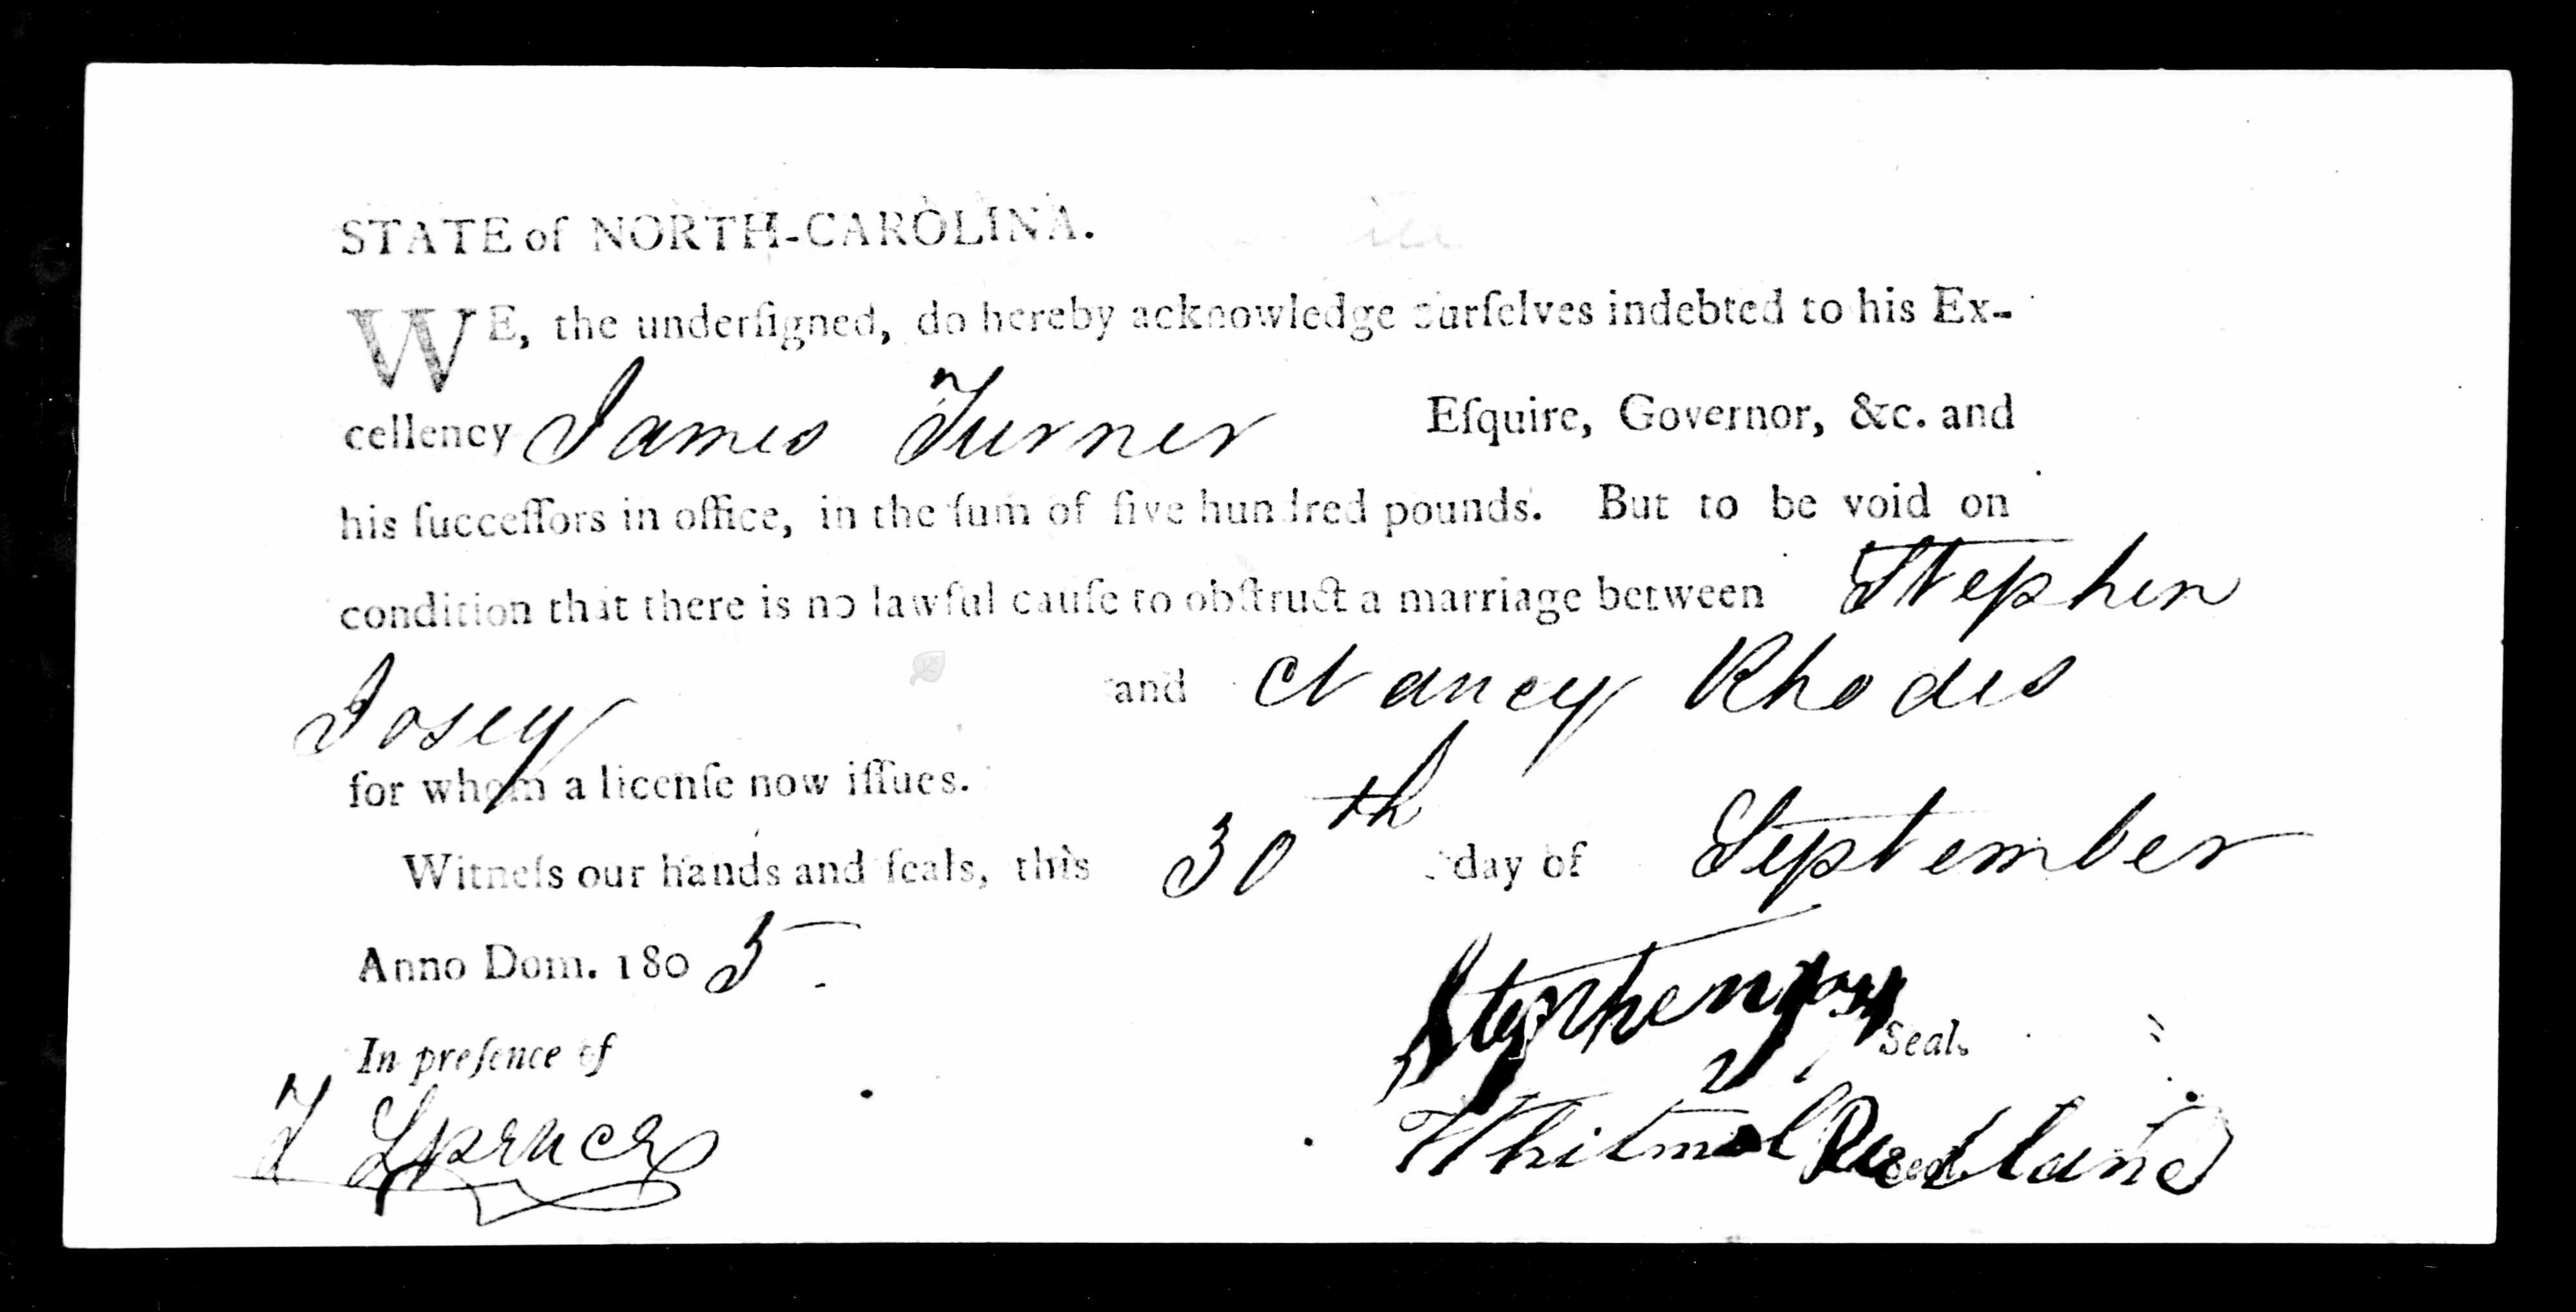 STATE of NORTH-CAROLINA.
WE, the underſigned, do hereby acknowledge ourſelves indebted to his Ex-
cellency James Turner Eſquire, Governor, &c. and
his ſucceſſors in office, in the ſum of five hundred pounds. But to be void on
condition that there is no lawful cauſe to obſtruct a marriage between Stephen
Josey and Nancy Rhodes
for whom a licenſe now iſſues.
Witneſs our hands and ſeals, this 30th day of September
Anno Dom. 1805.
In preſence of
Stephen Josey Seal.
J Spruce Whitmel Seal.